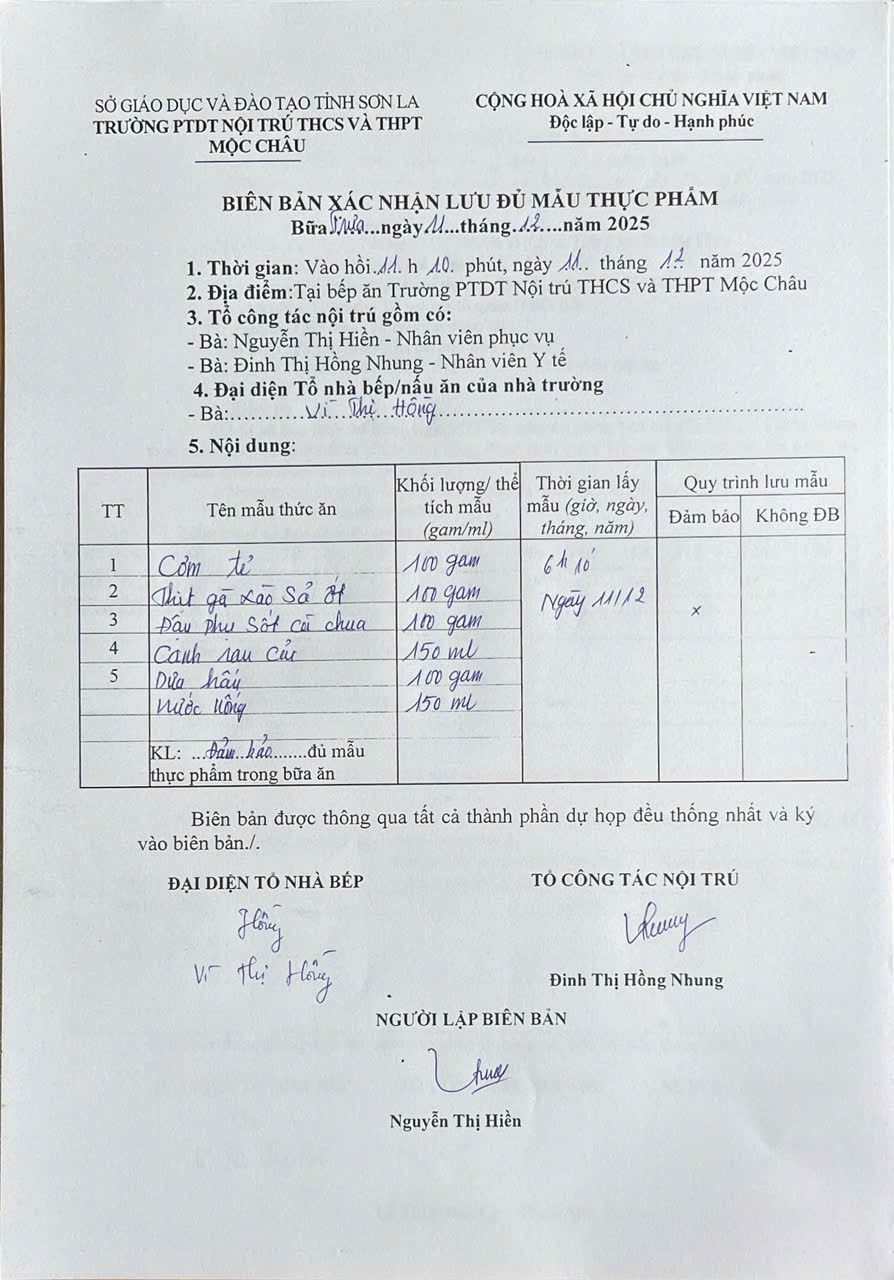 SỞ GIÁO DỤC VÀ ĐÀO TẠO TỈNH SƠN LA
TRƯỜNG PTDT NỘI TRÚ THCS VÀ THPT
MỘC CHÂU
CỘNG HOÀ XÃ HỘI CHỦ NGHĨA VIỆT NAM
Độc lập - Tự do - Hạnh phúc
BIÊN BẢN XÁC NHẬN LƯU ĐỦ MẪU THỰC PHẨM
Bữa Trưa...ngày 11...tháng.12....năm 2025
1. Thời gian: Vào hồi.11. h 10. phút, ngày 11.. tháng 12 năm 2025
2. Địa điểm:Tại bếp ăn Trường PTDT Nội trú THCS và THPT Mộc Châu
3. Tổ công tác nội trú gồm có:
- Bà: Nguyễn Thị Hiền - Nhân viên phục vụ
- Bà: Đinh Thị Hồng Nhung - Nhân viên Y tế
4. Đại diện Tổ nhà bếp/nấu ăn của nhà trường
- Bà:............Vì Thị Hồng............
5. Nội dung:
TT Tên mẫu thức ăn Khối lượng/ thể tích mẫu (gam/ml) Thời gian lấy mẫu (giờ, ngày, tháng, năm) Quy trình lưu mẫu
Đảm bảo Không ĐB
1 Cơm tẻ 100 gam 6h 10'
2 Thịt gà xào sả ớt 100 gam Ngày 11/12
3 Đậu phụ sốt cà chua 100 gam x
4 Canh rau cải 150 ml -
5 Dưa hấu 100 gam
Nước uống 150 ml
KL: ...Đảm bảo.......đủ mẫu
thực phẩm trong bữa ăn
Biên bản được thông qua tất cả thành phần dự họp đều thống nhất và ký
vào biên bản./.
ĐẠI DIỆN TỔ NHÀ BẾP
Hồng
Vì Thị Hồng
TỔ CÔNG TÁC NỘI TRÚ
Nhung
Đinh Thị Hồng Nhung
NGƯỜI LẬP BIÊN BẢN
Nguyễn Thị Hiền